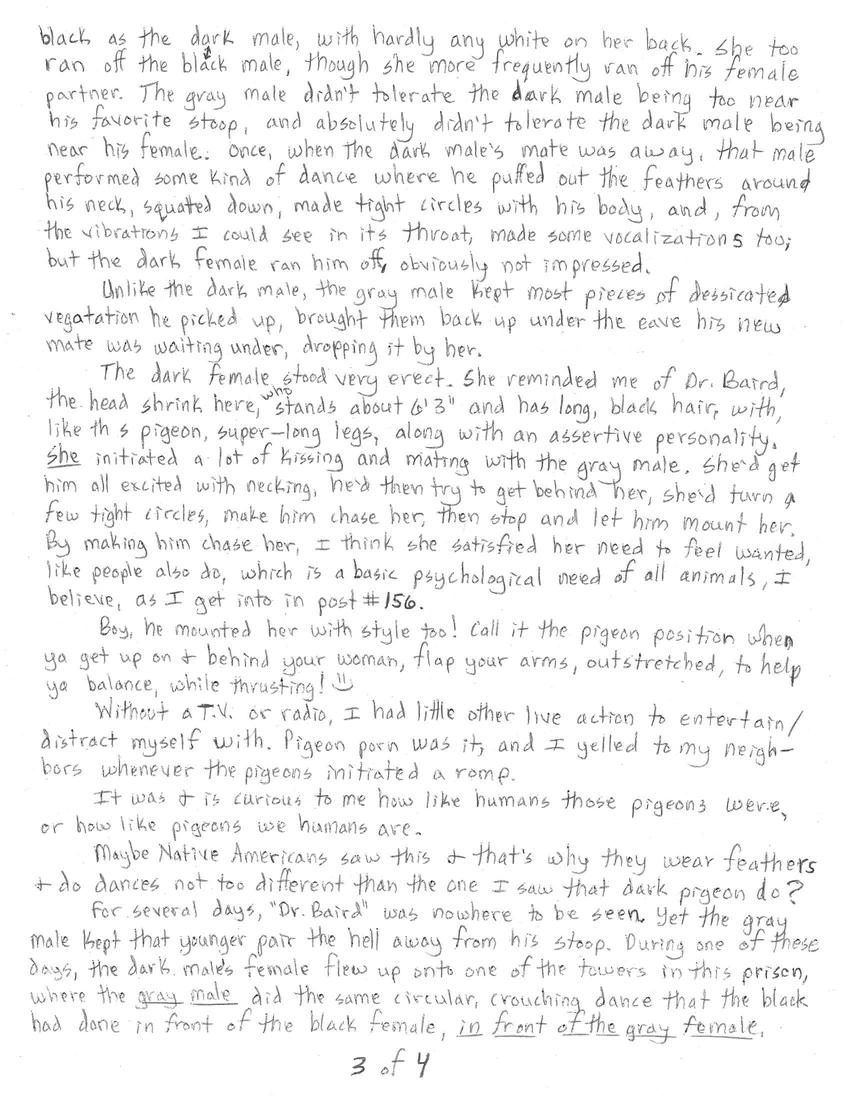 black as the dark male, with hardly any white on her back. She too
ran off the black male, though she more frequently ran off his female
partner. The gray male didn't tolerate the dark male being too near
his favorite stoop, and absolutely didn't tolerate the dark male being
near his female. Once, when the dark male's mate was away, that male
performed some kind of dance where he puffed out the feathers around
his neck, squated down, made tight circles with his body, and, from
the vibrations I could see in its throat, made some vocalizations too;
but the dark female ran him off, obviously not impressed.
Unlike the dark male, the gray male kept most pieces of dessicated
vegatation he picked up, brought them back up under the eave his new
mate was waiting under, dropping it by her.
The dark female stood very erect. She reminded me of Dr. Baird,
the head shrink here, who stands about 6'3" and has long, black hair, with,
like th s pigeon, super-long legs, along with an assertive personality.
She initiated a lot of kissing and mating with the gray male. She'd get
him all excited with necking, he'd then try to get behind her, she'd turn a
few tight circles, make him chase her, then stop and let him mount her.
By making him chase her, I think she satisfied her need to feel wanted,
like people also do, which is a basic psychological need of all animals, I
believe, as I get into in post #156.
Boy, he mounted her with style too! Call it the pigeon position when
ya get up on & behind your woman, flap your arms, outstretched, to help
ya balance, while thrusting! ☺
Without a T.V. or radio, I had little other live action to entertain/
distract myself with. Pigeon porn was it, and I yelled to my neigh-
bors whenever the pigeons initiated a romp.
It was & is curious to me how like humans those pigeons were,
or how like pigeons we humans are.
Maybe Native Americans saw this & that's why they wear feathers
& do dances not too different than the one I saw that dark pigeon do?
For several days, "Dr. Baird" was nowhere to be seen. Yet the gray
male kept that younger pair the hell away from his stoop. During one of these
days, the dark male's female flew up onto one of the towers in this prison,
where the gray male did the same circular, crouching dance that the black
had done in front of the black female, in front of the gray female.
3 of 4